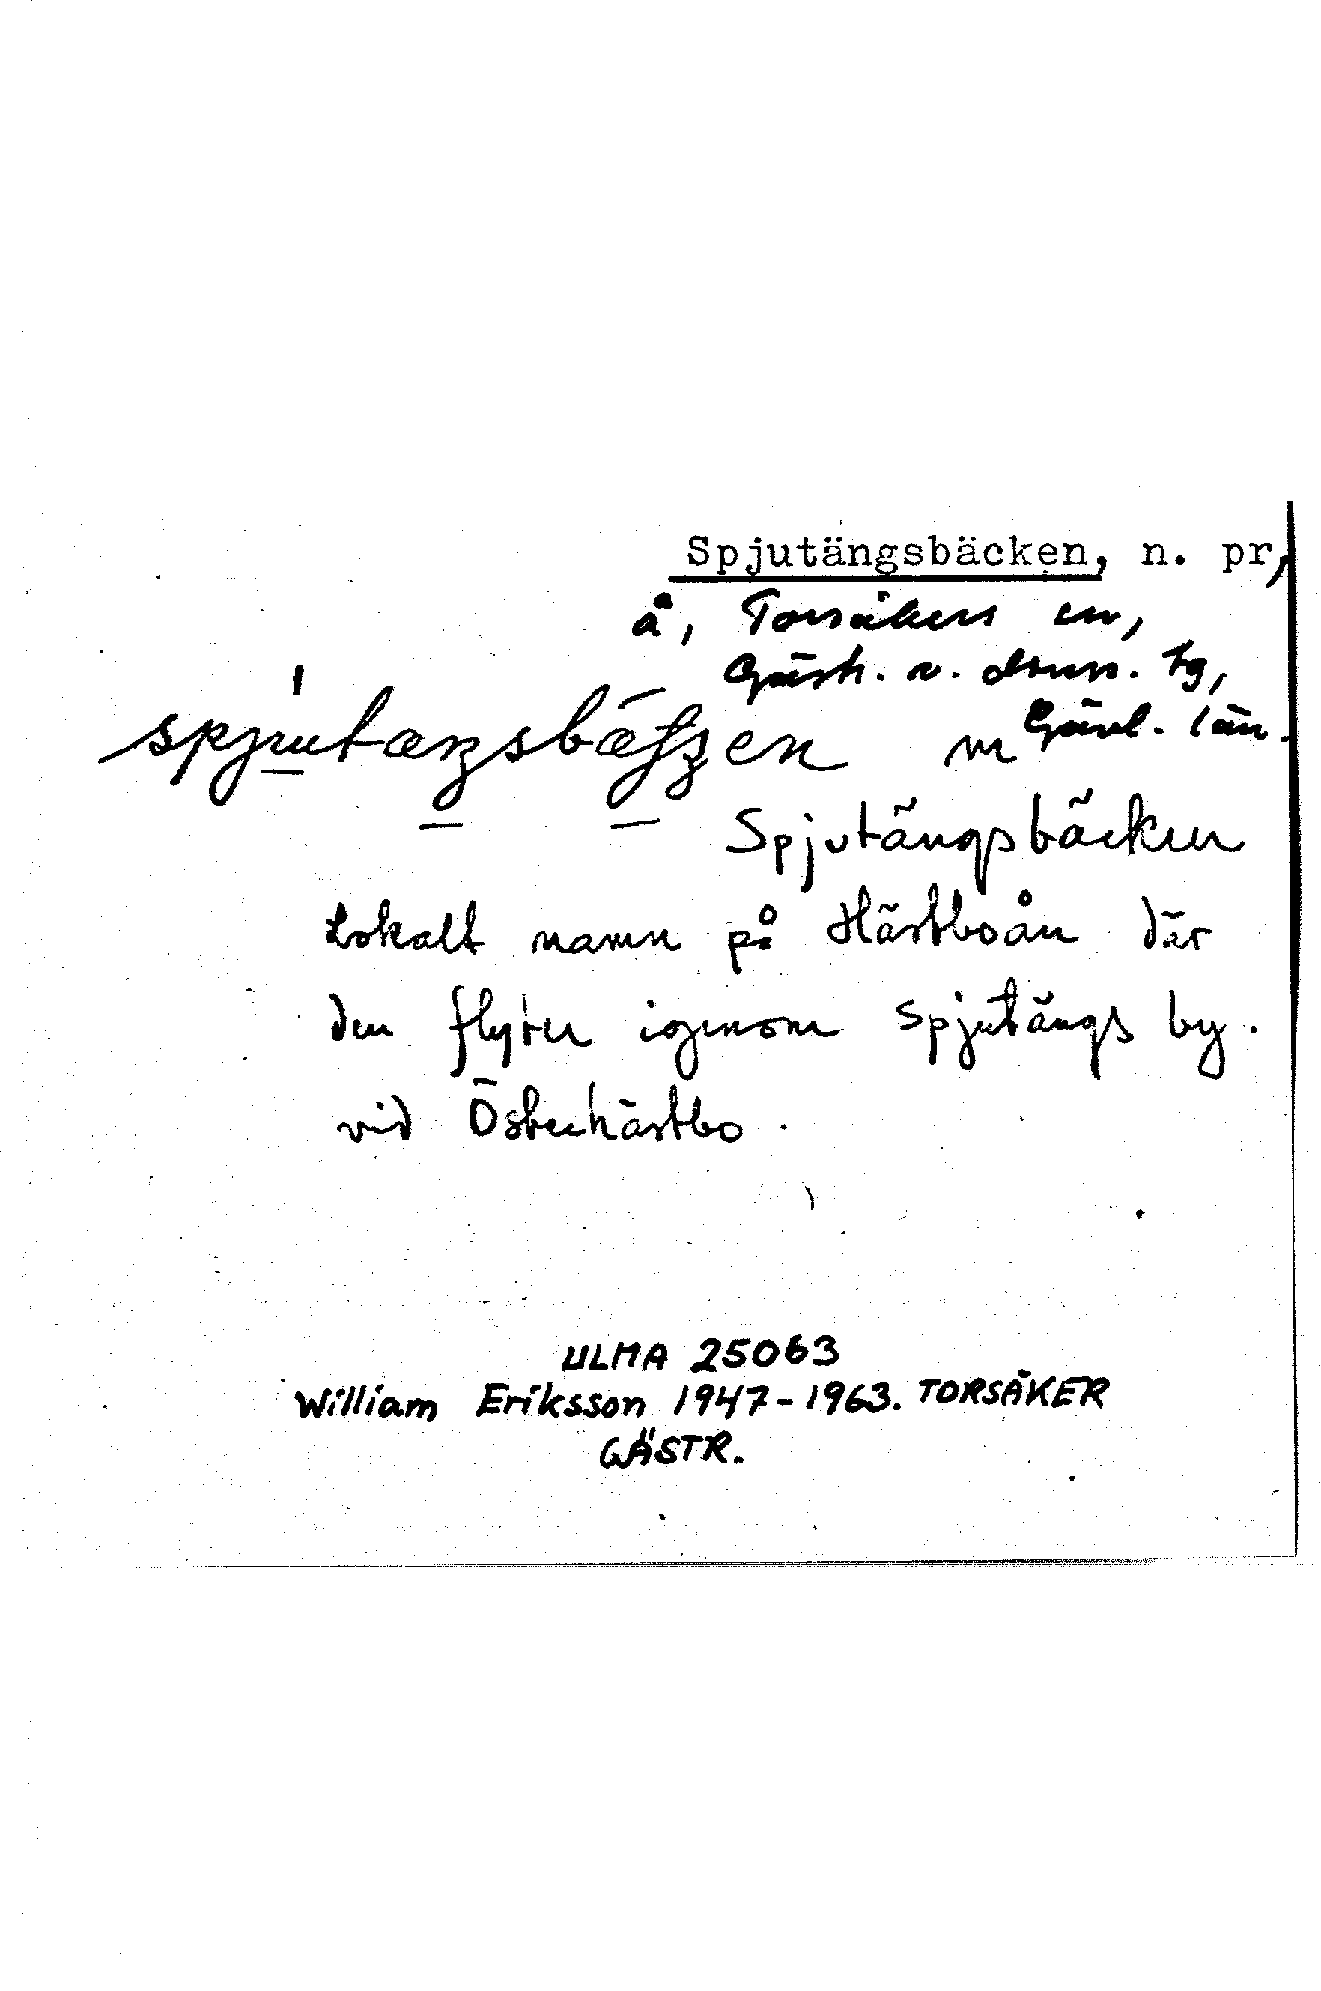 Spjutängsbäcken, n. pr,
å, Torsåkers sn,
Gästr. v. doms. tg,
Gävl. län.
m
Spjutängsbäcken
Lokalt namn på Hästboån där
den flyter igenom Spjutängs by.
vid Österhästbo.
ULMA 25063
William Eriksson 1947-1963. TORSÅKER
GÄSTR.